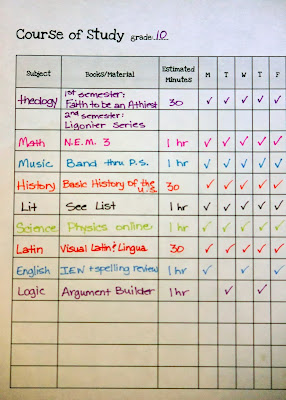 Course of Study grade: 10
Subject Books/Material Estimated Minutes M T W T F
theology 1st semester: Faith to be an Athiest 2nd semester: Ligonier Series 30 ✓ ✓ ✓ ✓ ✓
Math N.E.M. 3 1 hr ✓ ✓ ✓ ✓ ✓
Music Band thru P.S. 1 hr ✓ ✓ ✓ ✓ ✓
History Basic History of the U.S. 30 ✓ ✓ ✓ ✓ ✓
Lit See List 1 hr ✓ ✓ ✓ ✓ ✓
Science Physics online 1 hr ✓ ✓ ✓ ✓ ✓
Latin Visual Latin & Lingua 30 ✓ ✓ ✓ ✓ ✓
English IEW + spelling review 1 hr ✓ ✓ ✓
Logic Argument Builder 1 hr ✓ ✓